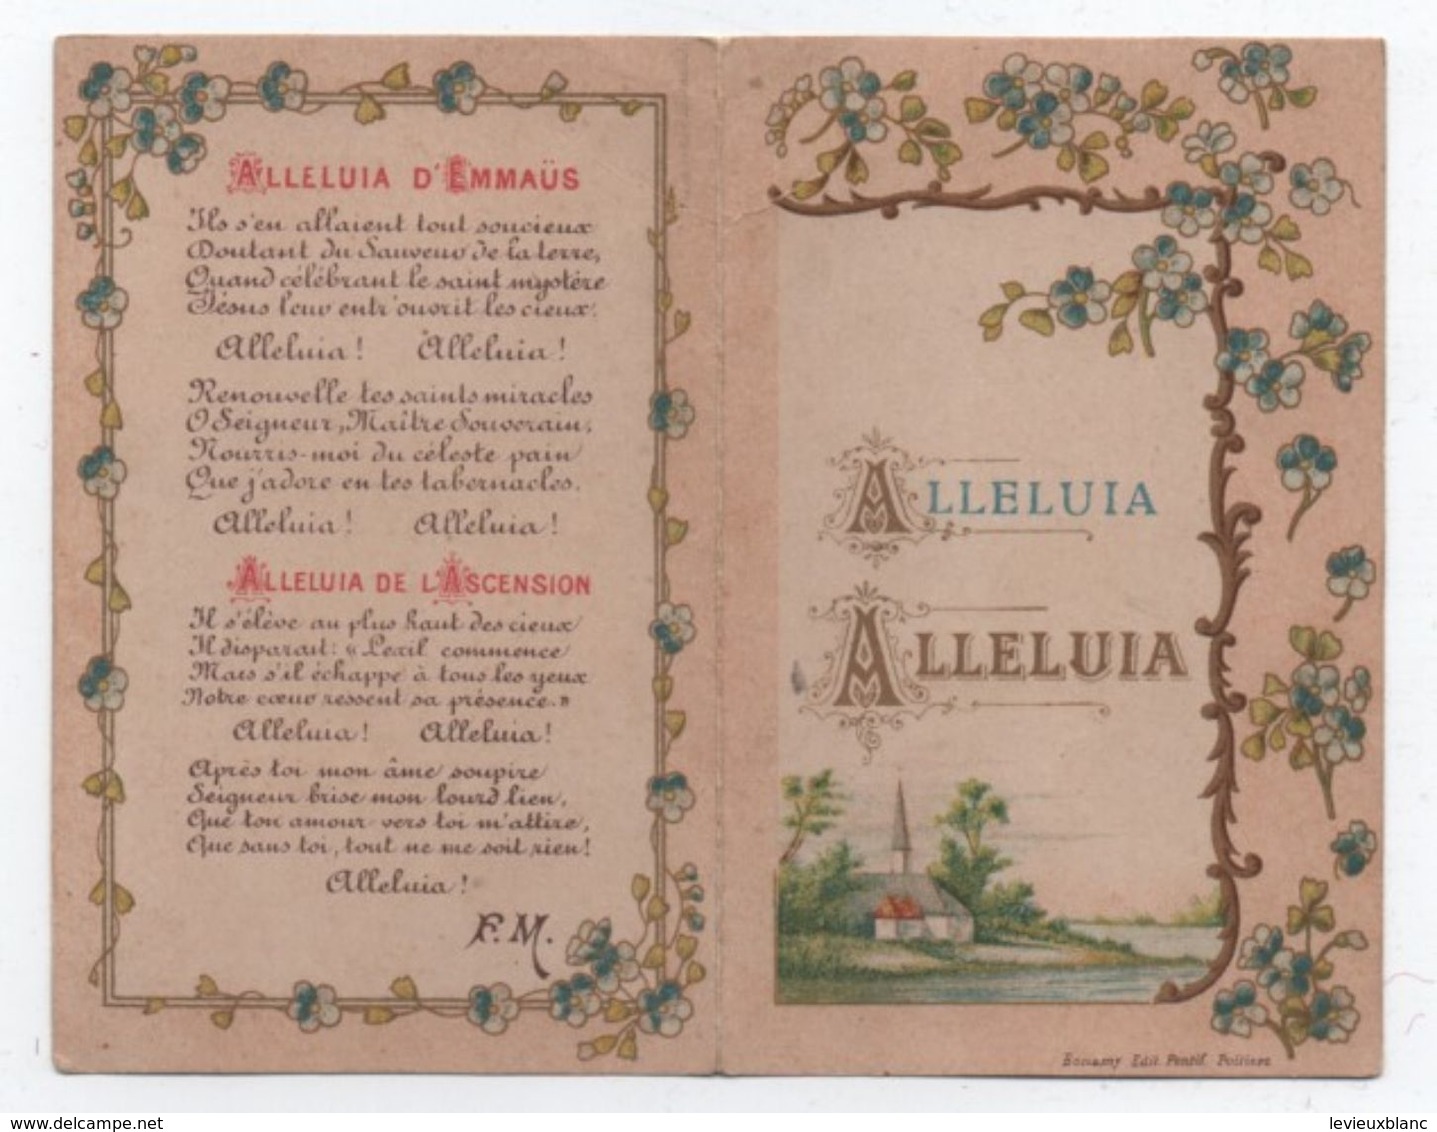 ALLELUIA D'EMMAÜS
Ils s'en allaient tout soucieux
Doutant du Sauveur de la terre,
Quand célébrant le saint mystère
Jésus leur entr'ouvrit les cieux.
Alleluia ! Alleluia !
Renouvelle tes saints miracles
O Seigneur, Maître Souverain;
Nourris-moi du céleste pain
Que j'adore en tes tabernacles.
Alleluia ! Alleluia !
ALLELUIA DE L'ASCENSION
Il s'élève au plus haut des cieux
Il disparait: « L'exil commence
Mais s'il échappe à tous les yeux
Notre cœur ressent sa présence. »
Alleluia ! Alleluia !
Après toi mon âme soupire
Seigneur brise mon lourd lien,
Que ton amour vers toi m'attire,
Que sans toi, tout ne me soit rien !
Alleluia !
F. M.
ALLELUIA
ALLELUIA
Bonamy Edit. Pontif. Poitiers
www.delcampe.net
levieuxblanc